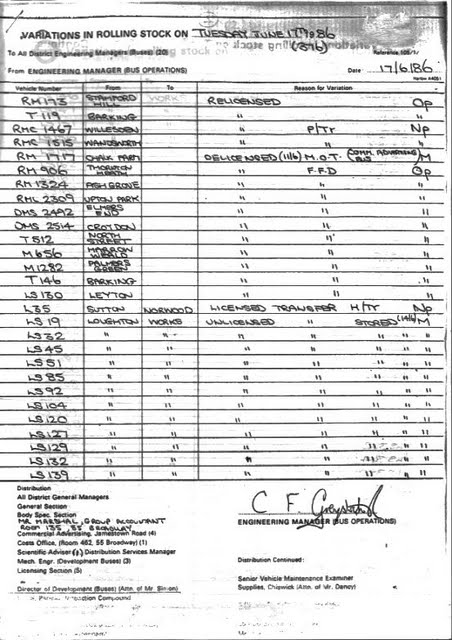 VARIATIONS IN ROLLING STOCK ON TUESDAY JUNE 17 1986
To All District Engineering Managers (Buses) (20)
From ENGINEERING MANAGER (BUS OPERATIONS) Date 17/6/86
Vehicle Number From To Reason for Variation
RM 173 STAMFORD HILL WORKS RELICENSED Op
T 119 BARKING " " "
RMC 1467 WILLESDEN " P/Tr Np
RMC 1515 WANDSWORTH " " "
RM 1717 CHALK FARM DELICENSED (11/6) M.O.T. (COMM. ADVERTISING BUS) M
RM 906 THORNTON HEATH " F.F.D Op
RM 1324 ASH GROVE " " "
RML 2309 UPTON PARK " " "
DMS 2492 ELMERS END " " "
DMS 2514 CROYDON " " "
T 512 NORTH STREET " " "
M 656 HARROW WEALD " " "
M 1282 PALMERS GREEN " " "
T 146 BARKING " " "
LS 130 LEYTON " " "
L35 SUTTON NORWOOD LICENSED TRANSFER H/Tr Np
LS 19 LOUGHTON WORKS UNLICENSED " STORED (14/6) M
LS 32 " " " " " " "
LS 45 " " " " " " "
LS 51 " " " " " " "
LS 85 " " " " " " "
LS 92 " " " " " " "
LS 104 " " " " " " "
LS 120 " " " " " " "
LS 127 " " " " " " "
LS 129 " " " " " " "
LS 132 " " " " " " "
LS 139 " " " " " " "
Distribution
All District General Managers
General Section
Body Spec. Section
MR MARSHAL, GROUP ACCOUNTANT
ROOM 135, 55 BROADWAY
Commercial Advertising, Jamestown Road (4)
Costs Office, (Room 462, 55 Broadway) (1)
Scientific Adviser Distribution Services Manager
Mech. Engr. (Development) (3)
Licensing Section (5)
Director of Development (Buses) (Attn. of Mr.
C F
ENGINEERING MANAGER (BUS OPERATIONS)
Distribution Continued:
Senior Vehicle Maintenance Examiner
Supplies, Chiswick (Attn. of Mr. Dancy)